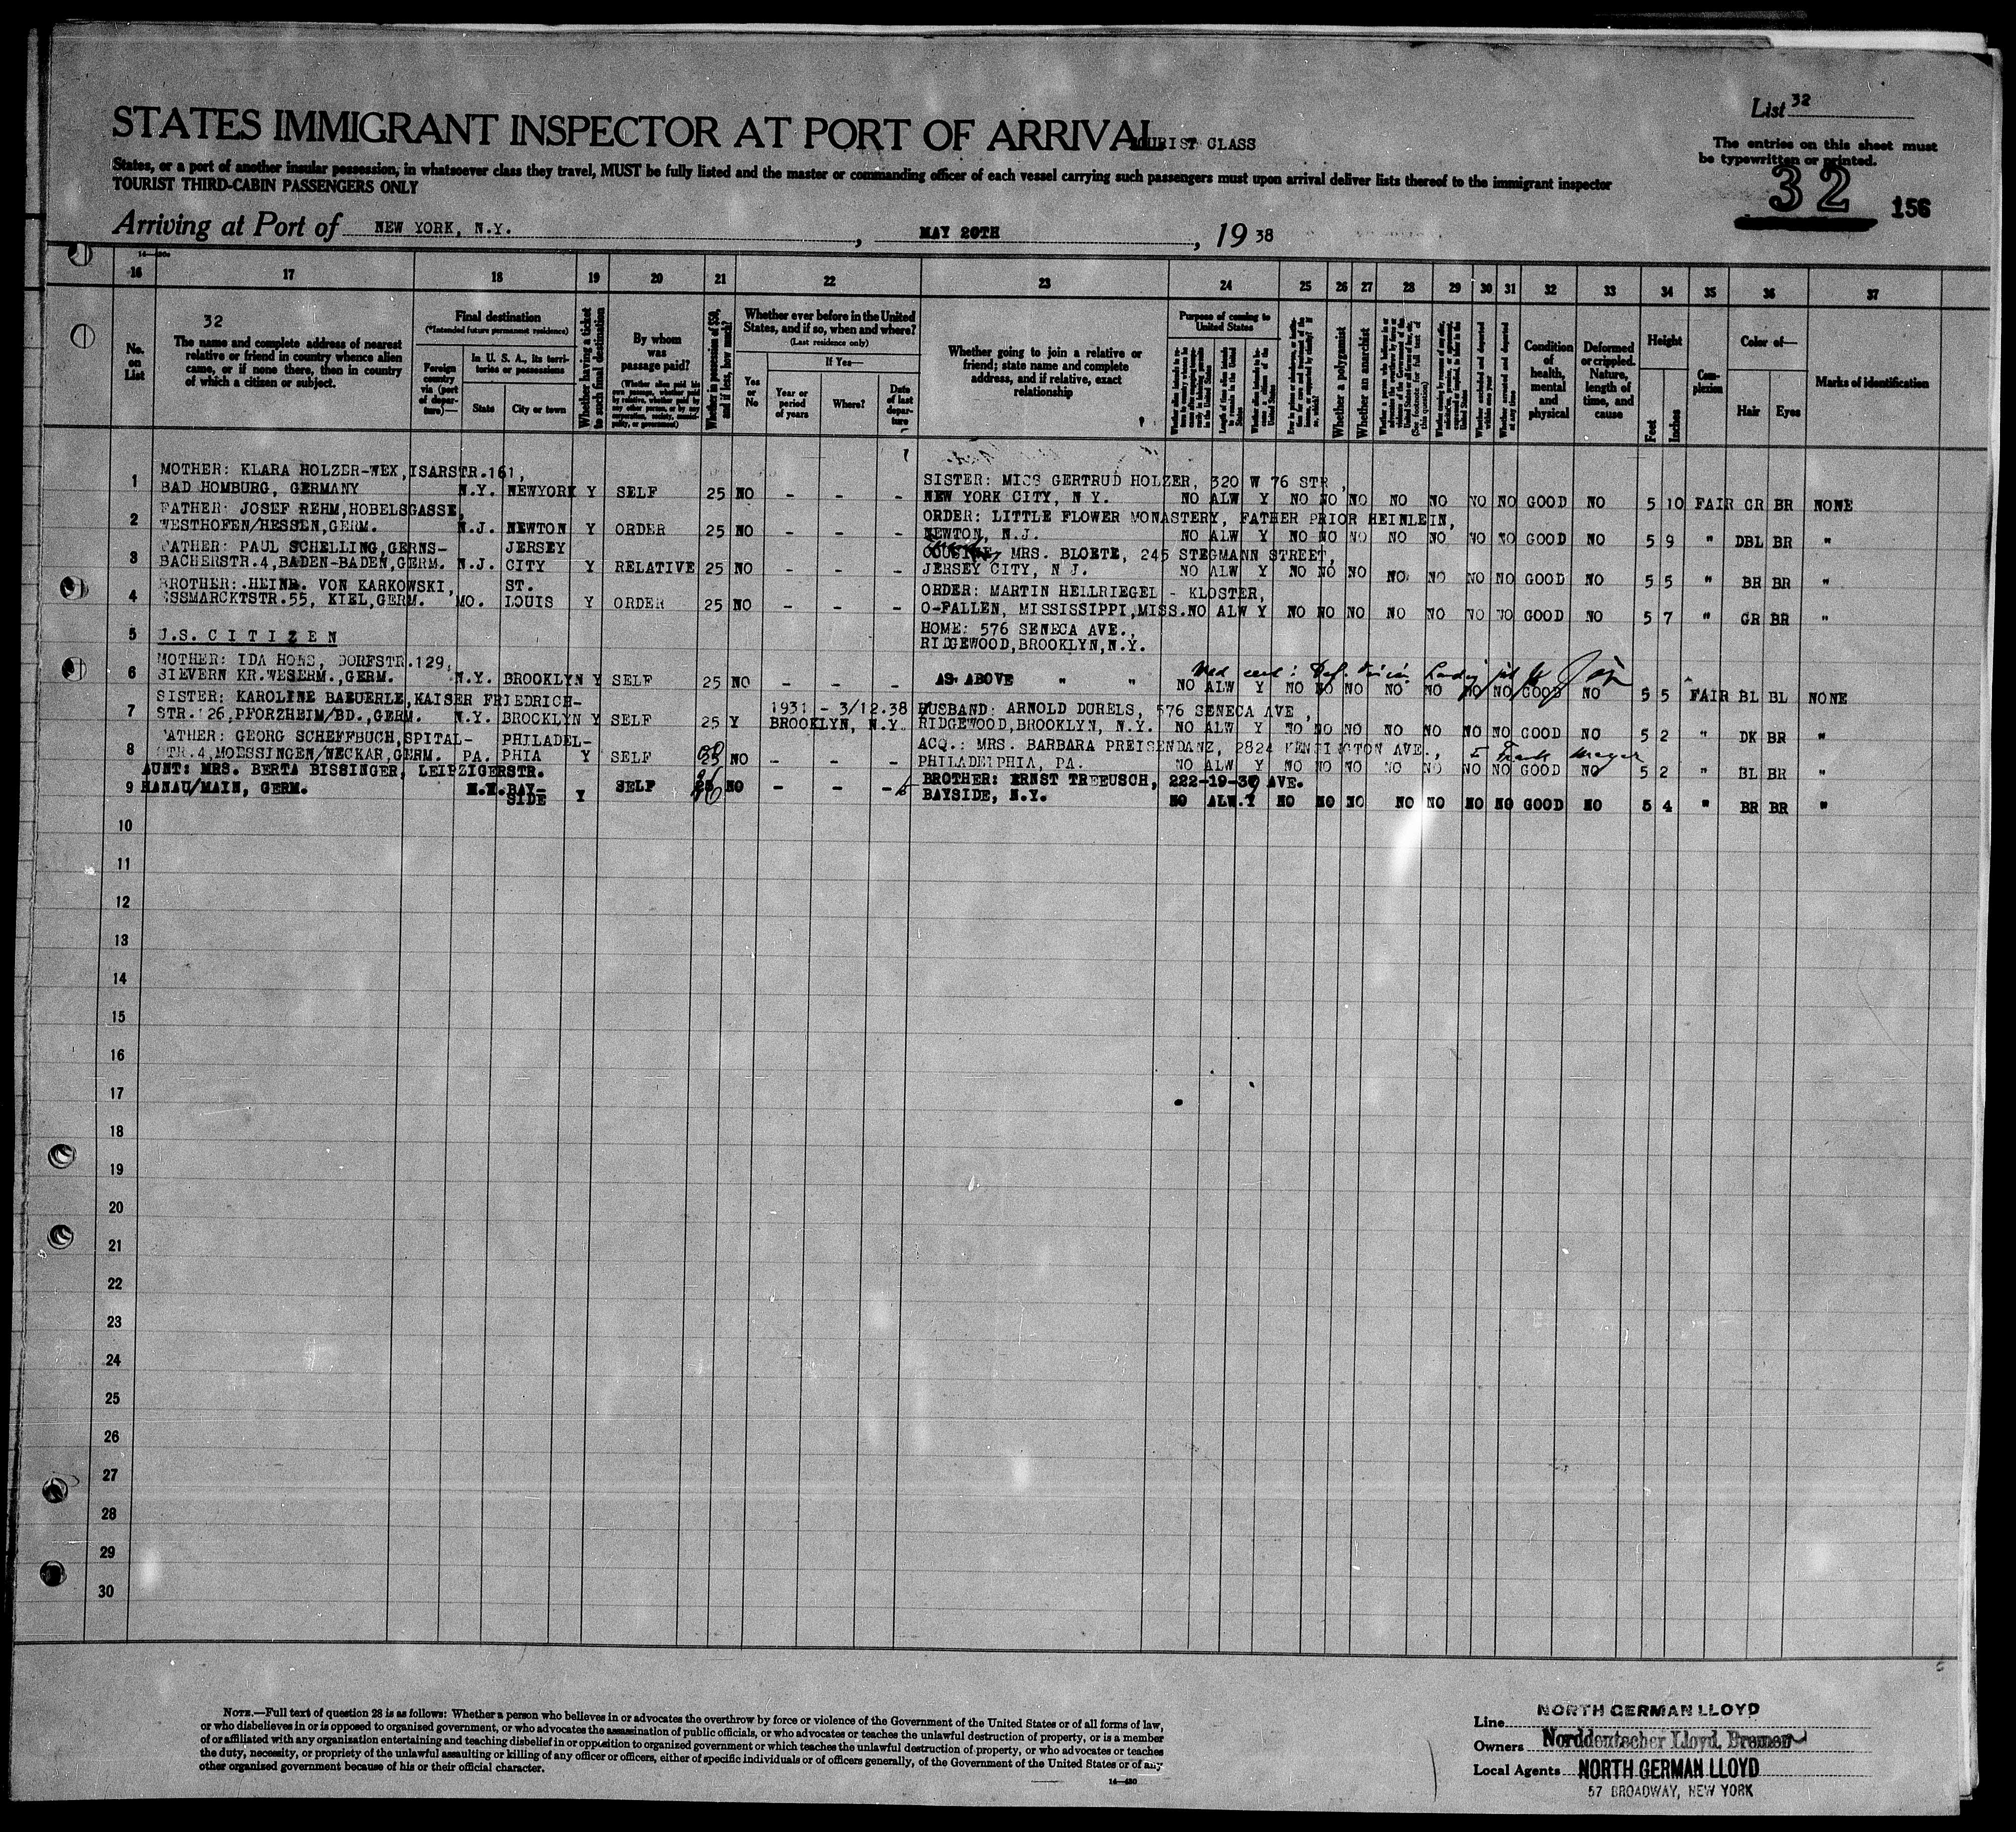 List 32
STATES IMMIGRANT INSPECTOR AT PORT OF ARRIVAL
TOURIST CLASS
The entries on this sheet must
be typewritten or printed.
States, or a port of another insular possession, in whatsoever class they travel, MUST be fully listed and the master or commanding officer of each vessel carrying such passengers must upon arrival deliver lists thereof to the immigrant inspector
TOURIST THIRD-CABIN PASSENGERS ONLY
32 156
Arriving at Port of NEW YORK, N.Y., MAY 20TH, 19 38
16 17 18 19 20 21 22 23 24 25 26 27 28 29 30 31 32 33 34 35 36 37
No. on List
32
The name and complete address of nearest
relative or friend in country whence alien
came, or if none there, then in country
of which a citizen or subject.
Final destination
(*Intended future permanent residence)
Foreign country via (port of departure)—
In U. S. A., its territories or possessions
State
City or town
Whether having a ticket to such final destination
By whom was passage paid?
Whether in possession of $50, and if less, how much?
Whether ever before in the United States, and if so, when and where?
(Last residence only)
Yes or No
If Yes—
Year or period of years
Where?
Date of last departure
Whether going to join a relative or
friend; state name and complete
address, and if relative, exact
relationship
Purpose of coming to United States
Whether a polygamist
Whether an anarchist
Condition of health, mental and physical
Deformed or crippled. Nature, length of time, and cause
Height
Feet
Inches
Complexion
Color of—
Hair
Eyes
Marks of identification
1 MOTHER: KLARA HOLZER-WEX, ISARSTR.161, SISTER: MISS GERTRUD HOLZER, 320 W 76 STR,
BAD HOMBURG, GERMANY N.Y. NEWYORK Y SELF 25 NO - - - NEW YORK CITY, N Y. NO ALW Y NO NO NO NO NO NO NO GOOD NO 5 10 FAIR GR BR NONE
2 FATHER: JOSEF REHM, HOBELSGASSE, ORDER: LITTLE FLOWER MONASTERY, FATHER PRIOR HEINLEIN,
WESTHOFEN/HESSEN, GERM. N.J. NEWTON Y ORDER 25 NO - - - NEWTON, N.J. NO ALW Y NO NO NO NO NO NO NO GOOD NO 5 9 " DBL BR "
3 FATHER: PAUL SCHELLING, GERNS- JERSEY MRS. BLOETE, 245 STEGMANN STREET,
BACHERSTR.4, BADEN-BADEN, GERM. N.J. CITY Y RELATIVE 25 NO - - - JERSEY CITY, N J. NO ALW Y NO NO NO NO NO NO NO GOOD NO 5 5 " BR BR "
4 BROTHER: HEINR. VON KARKOWSKI, ST. ORDER: MARTIN HELLRIEGEL - KLOSTER,
ESSMARCKTSTR.55, KIEL, GERM. MO. LOUIS Y ORDER 25 NO - - - O-FALLEN, MISSISSIPPI, MISS. NO ALW Y NO NO NO NO NO NO NO GOOD NO 5 7 " GR BR "
5 U.S. C I T I Z E N HOME: 576 SENECA AVE.,
RIDGEWOOD, BROOKLYN, N.Y.
6 MOTHER: IDA HONS, DORFSTR.129,
SIEVERN KR.WESERM., GERM. N.Y. BROOKLYN Y SELF 25 NO - - - AS ABOVE " " NO ALW Y NO NO NO NO NO NO NO GOOD NO 5 5 FAIR BL BL NONE
7 SISTER: KAROLINE BAEUERLE, KAISER FRIEDRICH- 1931 - 3/12.38 HUSBAND: ARNOLD DURELS, 576 SENECA AVE,
STR.126, PFORZHEIM/BD., GERM. N.Y. BROOKLYN Y SELF 25 Y BROOKLYN, N.Y. RIDGEWOOD, BROOKLYN, N.Y. NO ALW Y NO NO NO NO NO NO NO GOOD NO 5 2 " DK BR "
8 FATHER: GEORG SCHEFFBUCH, SPITAL- PHILADEL- ACQ.: MRS. BARBARA PREISENDANZ, 2824 KENSINGTON AVE.,
STR.4, MOESSINGEN/NECKAR, GERM. PA. PHIA Y SELF 25 NO - - - PHILADELPHIA, PA. NO ALW Y NO NO NO NO NO NO NO GOOD NO 5 2 " BL BR "
9 AUNT: MRS. BERTA BISSINGER, LEIPZIGERSTR. BROTHER: ERNST TREEUSCH, 222-19-37 AVE.
HANAU/MAIN, GERM. N.Y. BAY-SIDE Y SELF 25 NO - - - BAYSIDE, N.Y. NO ALW. Y NO NO NO NO NO NO NO GOOD NO 5 4 " BR BR "
10
11
12
13
14
15
16
17
18
19
20
21
22
23
24
25
26
27
28
29
30
NOTE.—Full text of question 28 is as follows: Whether a person who believes in or advocates the overthrow by force or violence of the Government of the United States or of all forms of law,
or who disbelieves in or is opposed to organised government, or who advocates the assassination of public officials, or who advocates or teaches the unlawful destruction of property, or is a member
of or affiliated with any organization entertaining and teaching disbelief in or opposition to organized government or which teaches the unlawful destruction of property, or who advocates or teaches
the duty, necessity, or propriety of the unlawful assaulting or killing of any officer or officers, either of specific individuals or of officers generally, of the Government of the United States or of any
other organised government because of his or their official character.
14—430
Line NORTH GERMAN LLOYD
Owners Norddeutscher Lloyd, Bremen
Local Agents NORTH GERMAN LLOYD
57 BROADWAY, NEW YORK